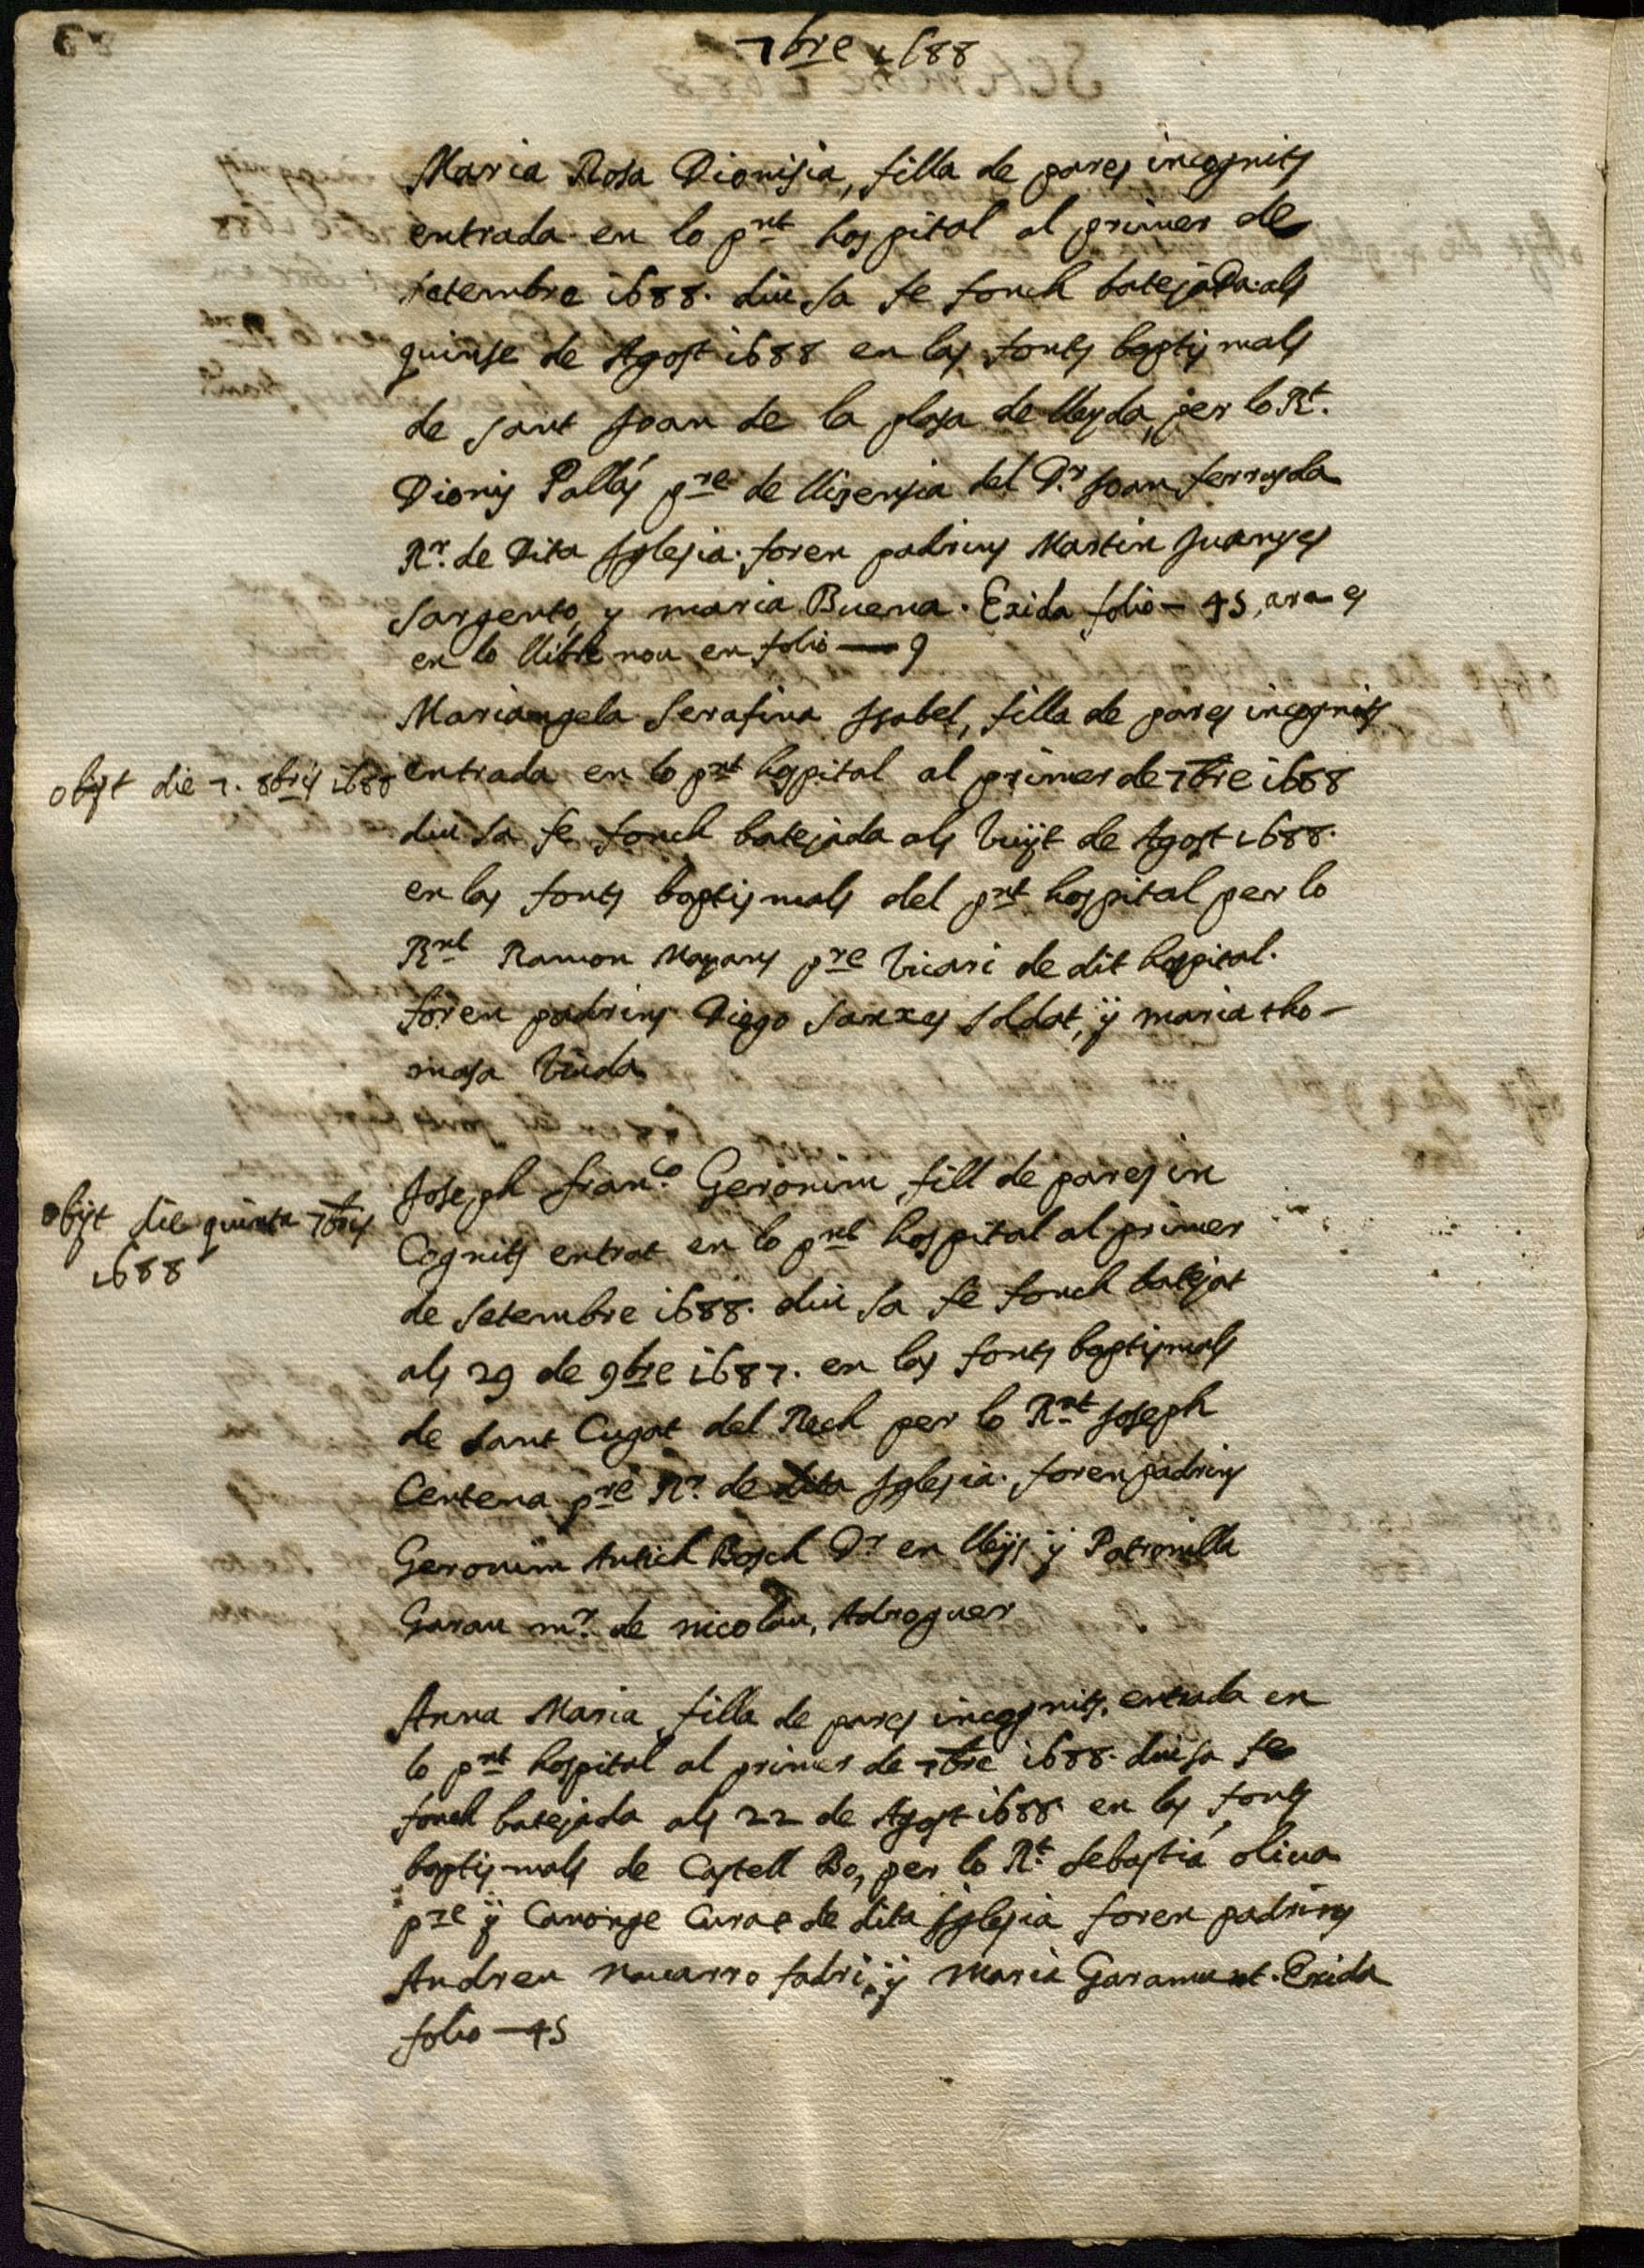 7bre 1688
Maria Rosa Dionisia, filla de pares incognits
entrada en lo pnt hospital al primer de
setembre 1688. diu sa fe fonch batejada als
quinse de Agost 1688 en las fonts baptismals
de sant Joan de la plasa de lleyda, per lo Rt.
Dionis Pallás pre de llisensia del Dr. Joan ferruyda
Rr. de Dita Iglesia. foren padrins Martin Juanses
sargento, y maria Buena. Exida folio — 45, ara es
en lo llibre nou en folio — 9
Mariangela Serafina Isabel, filla de pares incognits
obijt die 7. 8bris 1688
entrada en lo pnt hospital al primer de 7bre 1688
diu sa fe fonch batejada als vuyt de Agost 1688.
en las fonts baptismals del pnt hospital per lo
Rnt Ramon Mayans pre vicari de dit hospital.
foren padrins Diego sanxes soldat, ÿ maria tho-
masa viuda
Joseph franco. Geronim, fill de pares in
obijt die quinta 7bris
1688
Cognits entrat en lo pnt hospital al primer
de setembre 1688. diu sa fe fonch batejat
als 29 de 9bre 1687. en las fonts baptismals
de sant Cugat del Rech per lo Rnt Joseph
Centena pre Rr. de dita Iglesia. foren padrins
Geronim Antich Bosch Dr en lleys ÿ Potronilla
Garau mr. de nicolau, Adroguer
Anna Maria, filla de pares incognits, entrada en
lo pnt hospital al primer de 7bre 1688. diu sa fe
fonch batejada als 22 de Agost 1688. en las fonts
baptismals de Castell Bo, per lo Rt. Sebastiá oliva
pre ÿ Canonge Curat de dita Iglesia foren padrins
Andreu navarro fadri, ÿ Maria Garamunt. Exida
folio — 45